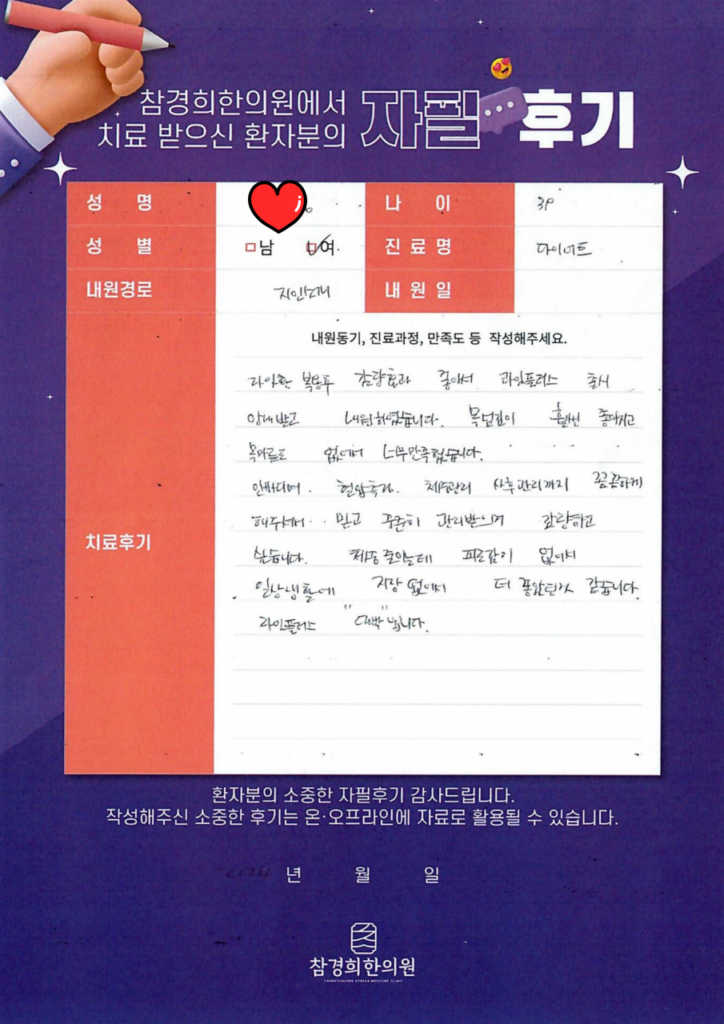 참경희한의원에서
치료 받으신 환자분의 자필 후기
성 명
나 이 39
성 별 남 여
진료명 다이어트
내원경로 지인소개
내원일
내원동기, 진료과정, 만족도 등 작성해주세요.
치료후기
라인환 복용후 감량효과 좋아서 라인플러스 출시
안내받고 내원하였습니다. 목넘김이 훨씬 좋아지고
목마름도 없어서 너무만족했습니다.
인바디며. 혈압측정. 체중관리 사후관리까지 꼼꼼하게
해주셔서 믿고 꾸준히 관리받으며 감량하고
싶습니다. 체중 줄이는데 피로감이 없어서
일상생활에 지장 없어서 더 좋았던거 같습니다.
라인플러스 "대박" 입니다.
환자분의 소중한 자필후기 감사드립니다.
작성해주신 소중한 후기는 온·오프라인에 자료로 활용될 수 있습니다.
2024 년 월 일
참경희한의원